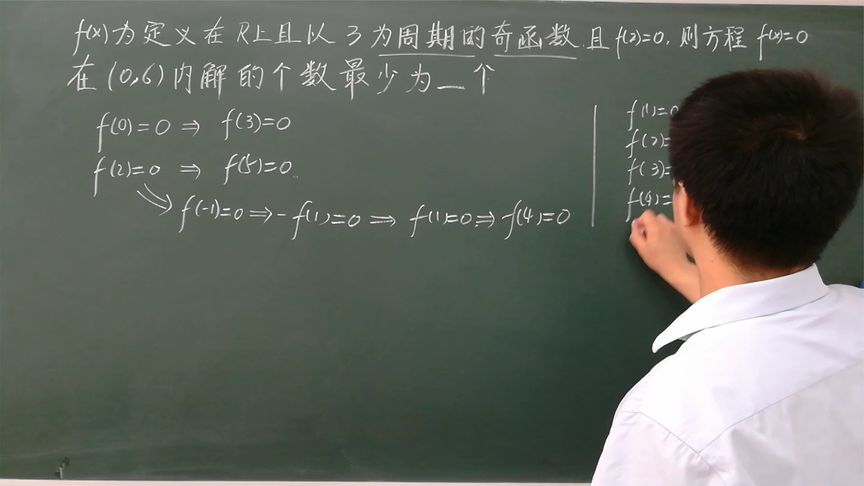 f(x)为定义在R上且以3为周期的奇函数.且f(2)=0,则方程f(x)=0
在(0,6)内解的个数最少为__个
f(0)=0⇒f(3)=0
f(2)=0⇒f(5)=0.
⇒f(-1)=0⇒-f(1)=0⇒f(1)=0⇒f(4)=0
f(1)=0
f(2)=
f(3)=
f(4)=